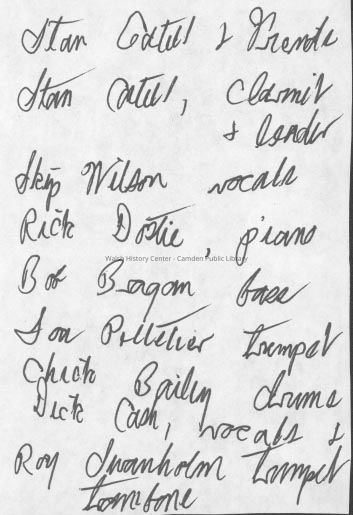 Stan Catell & Friends
Stan Catell, Clarinit
& leader
Skip Wilson vocals
Rick Dostie, piano
Walsh History Center - Camden Public Library
Bob Bragom bass
Don Pelletier trumpet
Chuck Bailey drums
Dick Cash, vocals &
Roy Swanholm trumpet
trombone